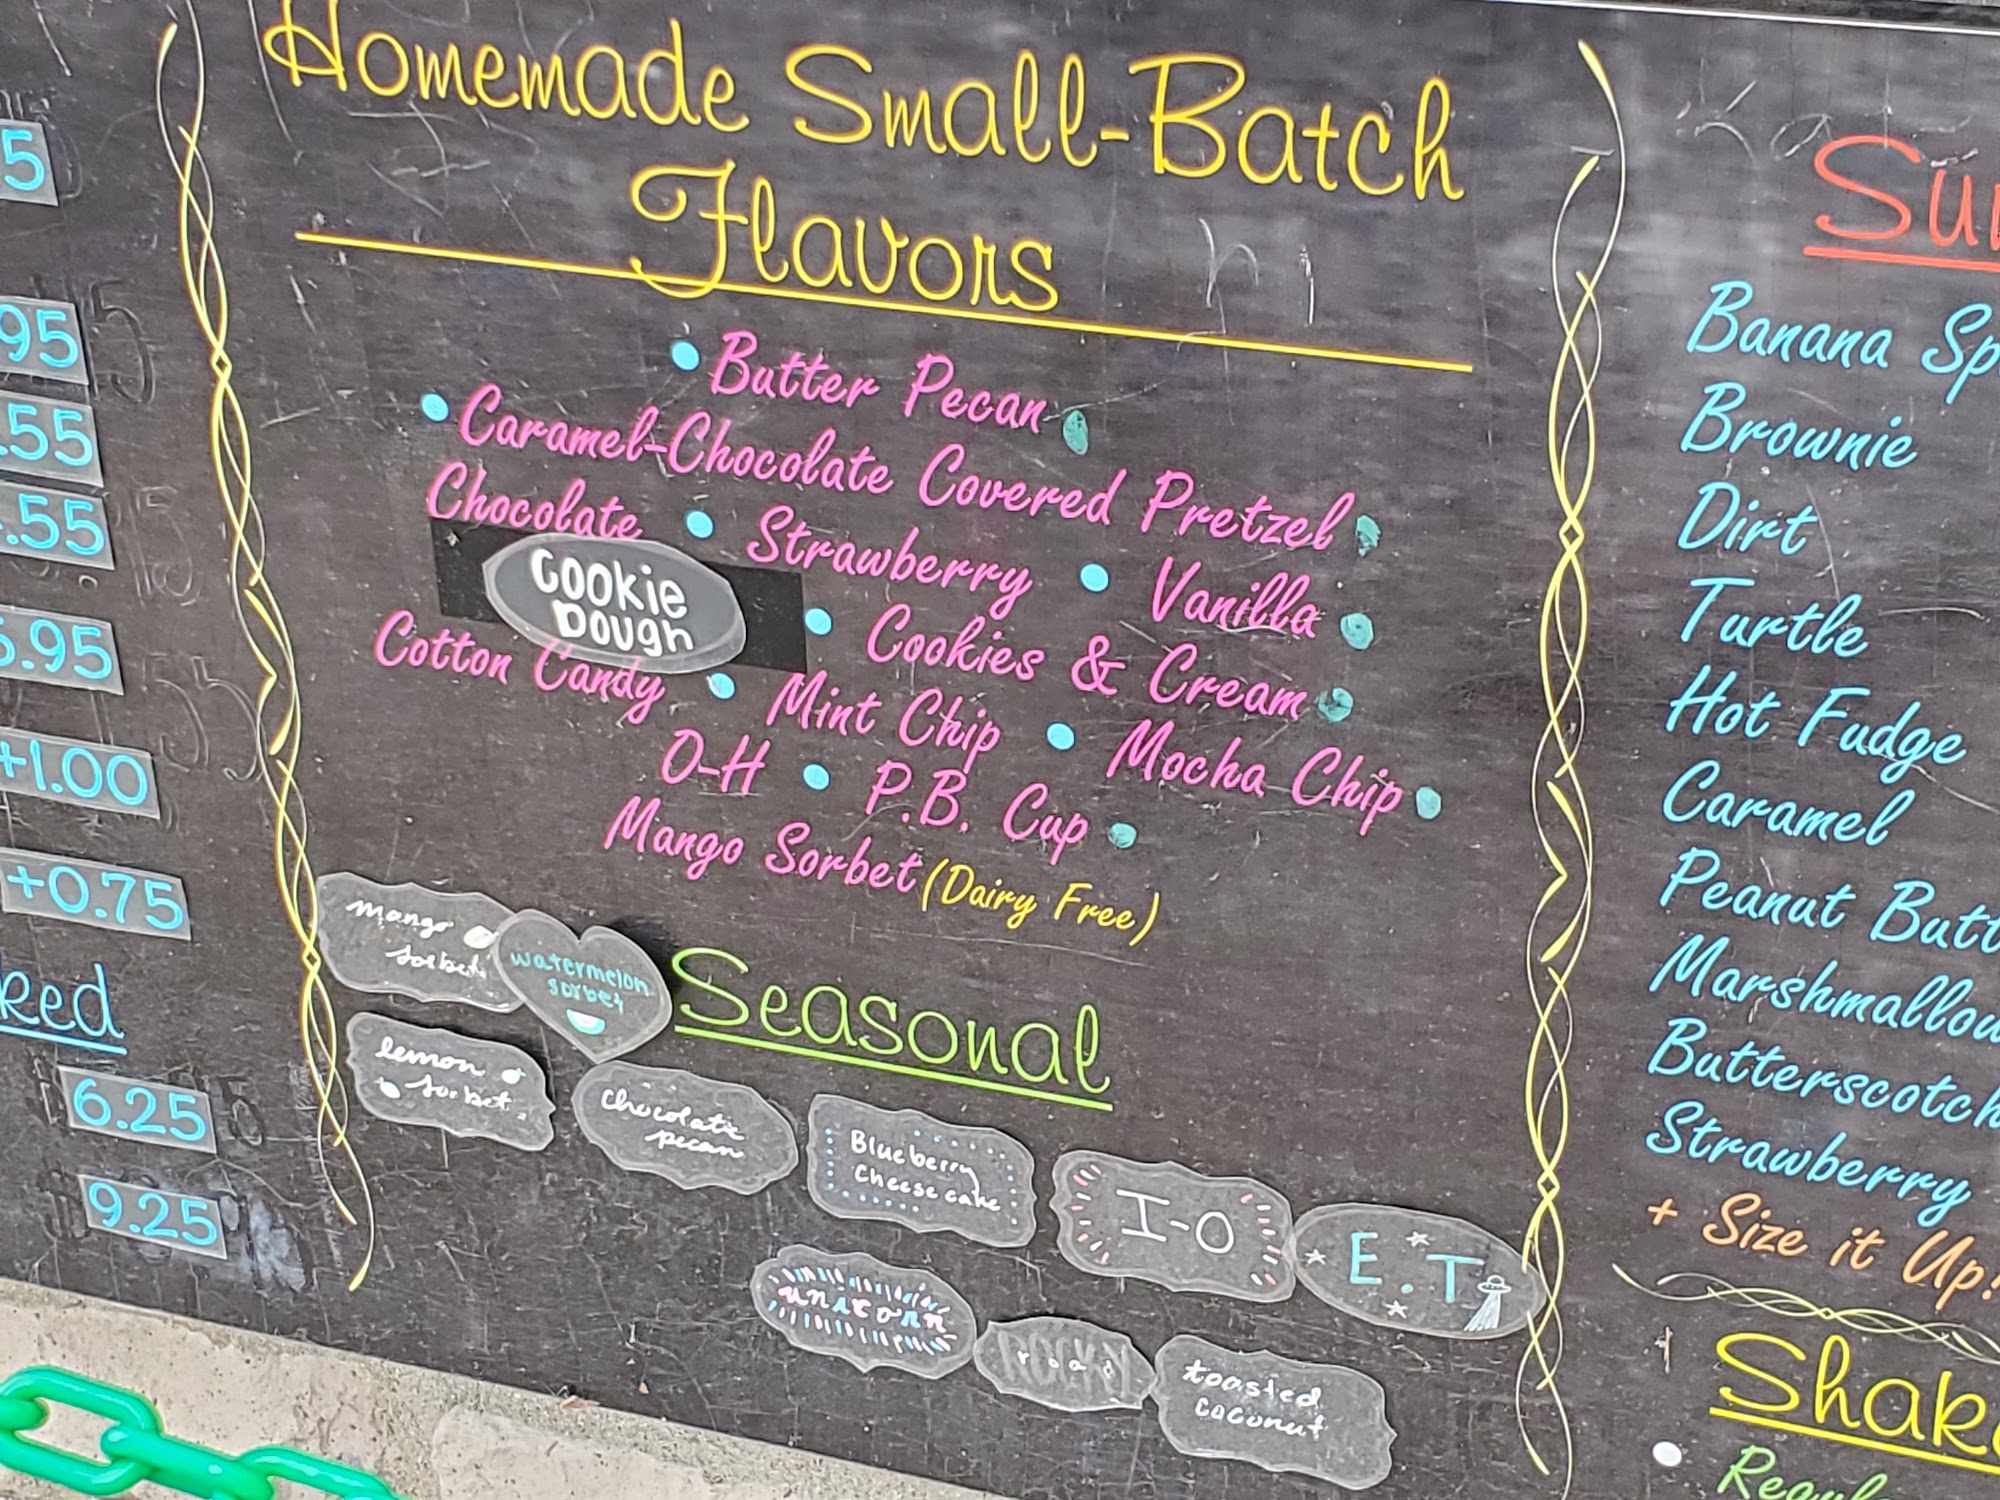 5
95
.55
.55
5.95
+1.00
+0.75
ked
6.25
9.25
Homemade Small-Batch
Flavors
Butter Pecan
Caramel-Chocolate Covered Pretzel
Chocolate • Strawberry • Vanilla
Cookie
Dough
• Cookies & Cream
Cotton Candy • Mint Chip • Mocha Chip
O-H • P.B. Cup
Mango Sorbet (Dairy Free)
mango
sorbet
watermelon
sorbet
Seasonal
lemon
sorbet
chocolate
pecan
Blueberry
Cheesecake
I-O
E.T
unicorn
ROCKY
road
toasted
coconut
Su
Banana Sp
Brownie
Dirt
Turtle
Hot Fudge
Caramel
Peanut Butt
Marshmallow
Butterscotch
Strawberry
+ Size it Up!
Shak
Regul